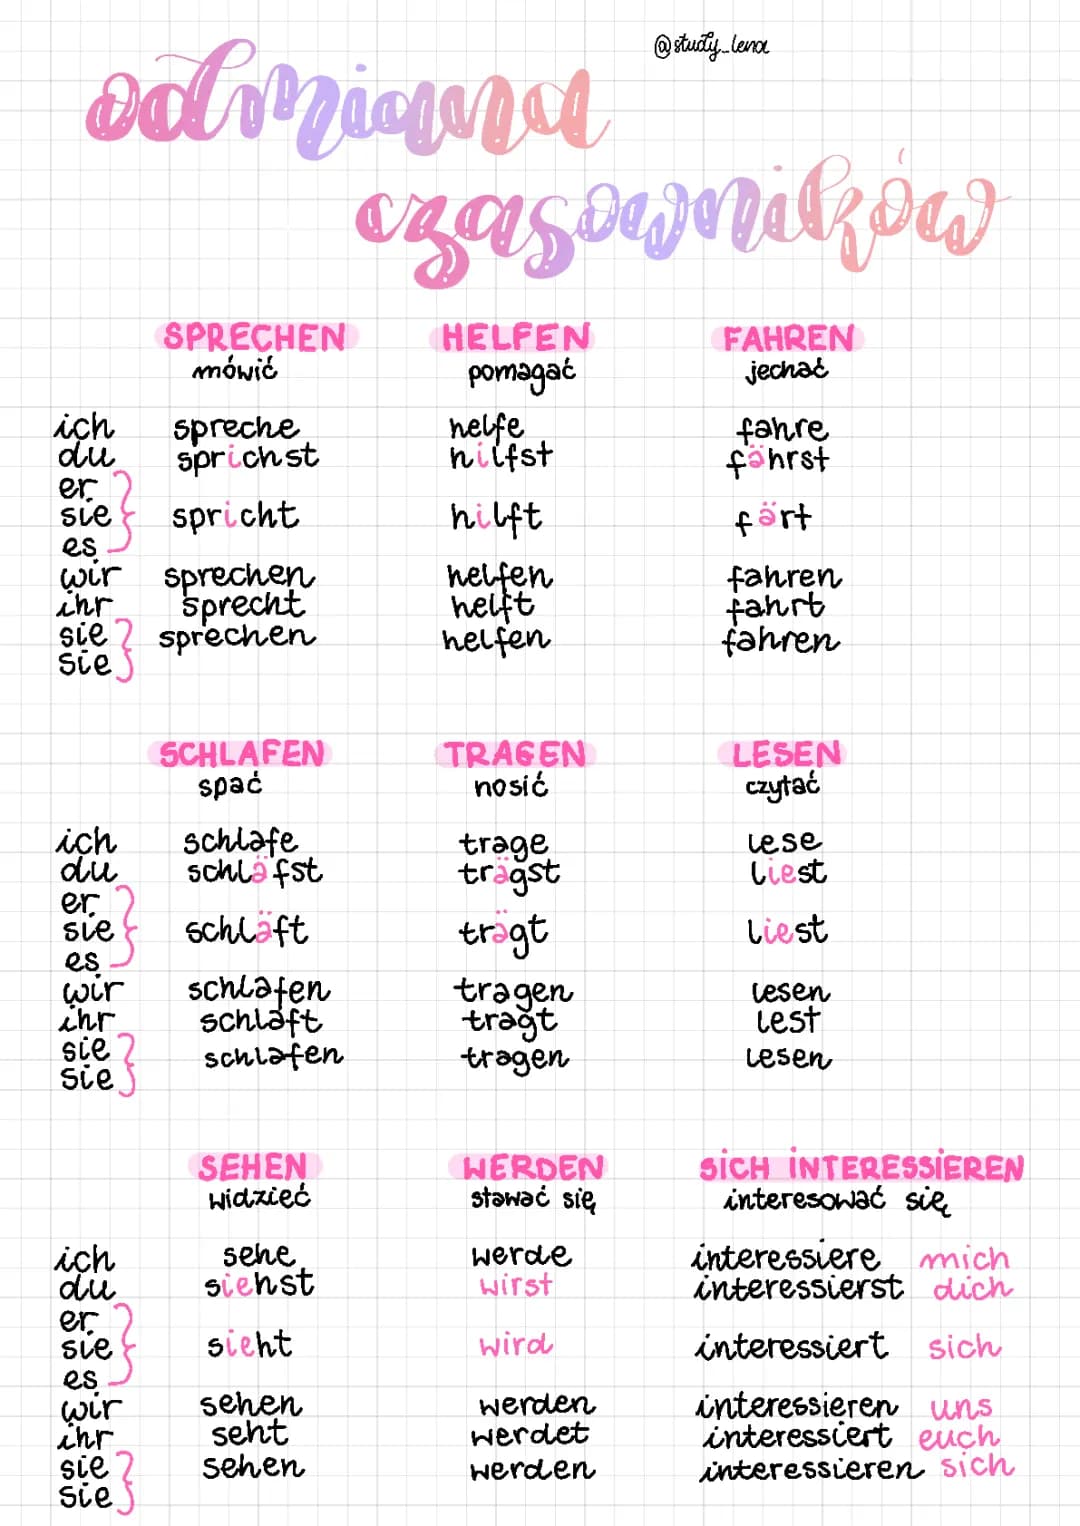 @study_lena
odmiana
czasowników
SPRECHEN HELFEN FAHREN
mówić pomagać jechać
ich spreche helfe fahre
du sprichst hilfst fährst
er
sie spricht hilft färt
es
wir sprechen helfen fahren
ihr sprecht helft fahrt
sie sprechen helfen fahren
Sie
SCHLAFEN TRAGEN LESEN
spać nosić czytać
ich schlafe trage lese
du schläfst trägst liest
er
sie schläft trägt liest
es
wir schlafen tragen lesen
ihr schlaft tragt lest
sie schlafen tragen lesen
Sie
SEHEN WERDEN SICH INTERESSIEREN
widzieć stawać się interesować się
ich sehe werde interessiere mich
du siehst wirst interessierst dich
er
sie sieht wird interessiert sich
es
wir sehen werden interessieren uns
ihr seht werdet interessiert euch
sie sehen werden interessieren sich
Sie